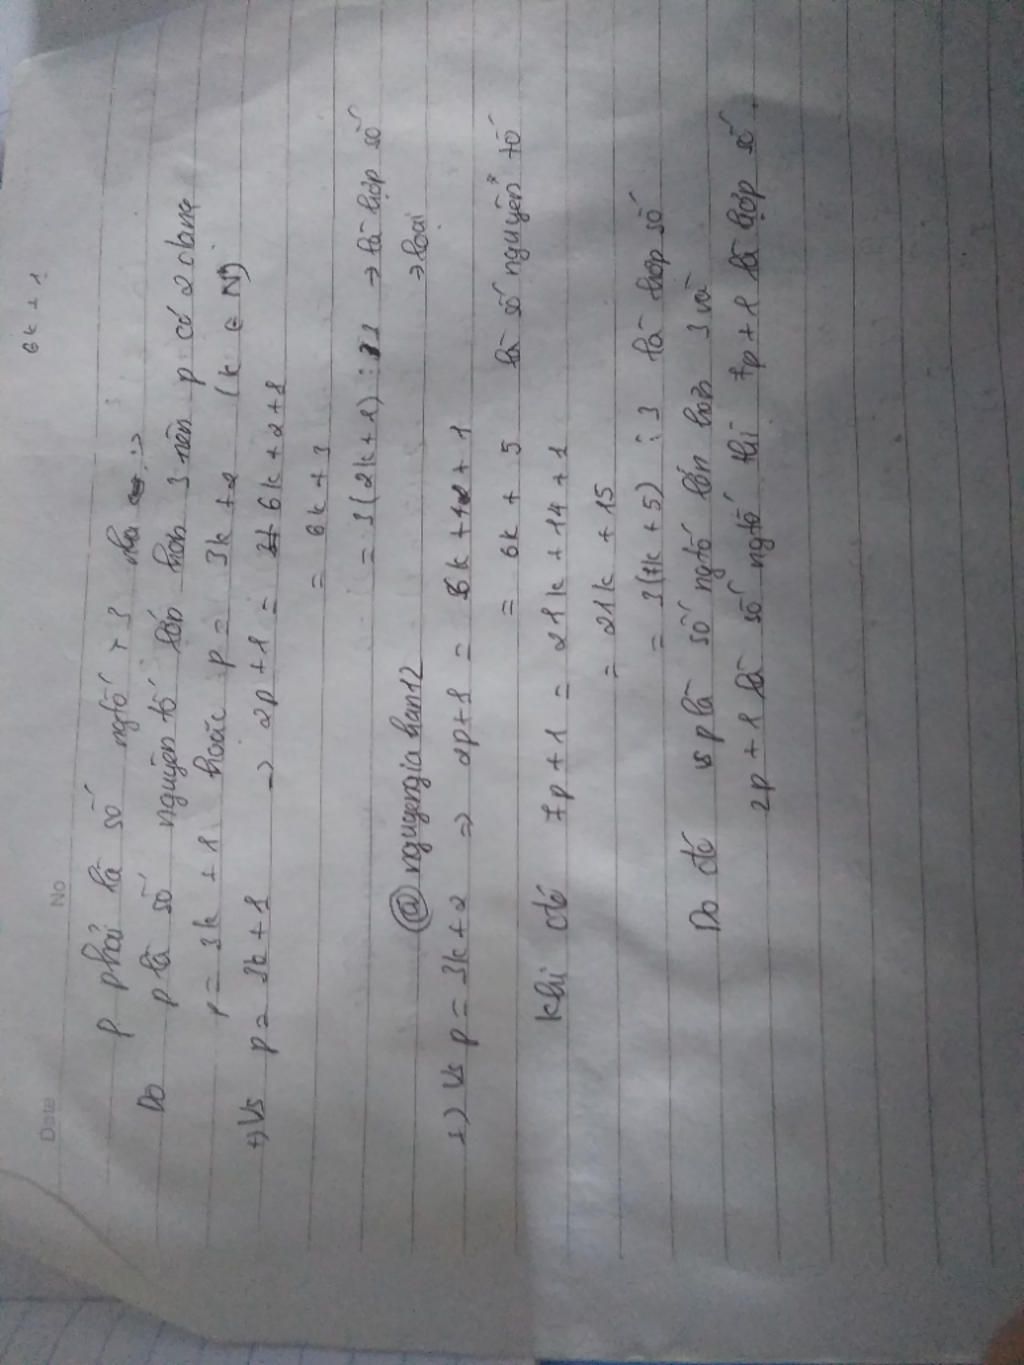 6k + 1
Date No
p phải là số ngtố > 3 nha :>
Do p là số nguyên tố lớn hơn 3 nên p có 2 dạng
p = 3k + 1 hoặc p = 3k + 2 (k ∈ N*)
+) Vs p = 3k + 1 → 2p + 1 = 6k + 2 + 1
= 6k + 3
= 3(2k + 1) ⋮ 3 → là hợp số
→ loại
@nguyengiahan12
+) Vs p = 3k + 2 => 2p + 1 = 6k + 4 + 1
= 6k + 5 là số nguyên tố
Khi đó 7p + 1 = 21k + 14 + 1
= 21k + 15
= 3(7k + 5) ⋮ 3 là hợp số
Do đó vs p là số ngtố lớn hơn 3 và
2p + 1 là số ngtố thì 7p + 1 là hợp số.